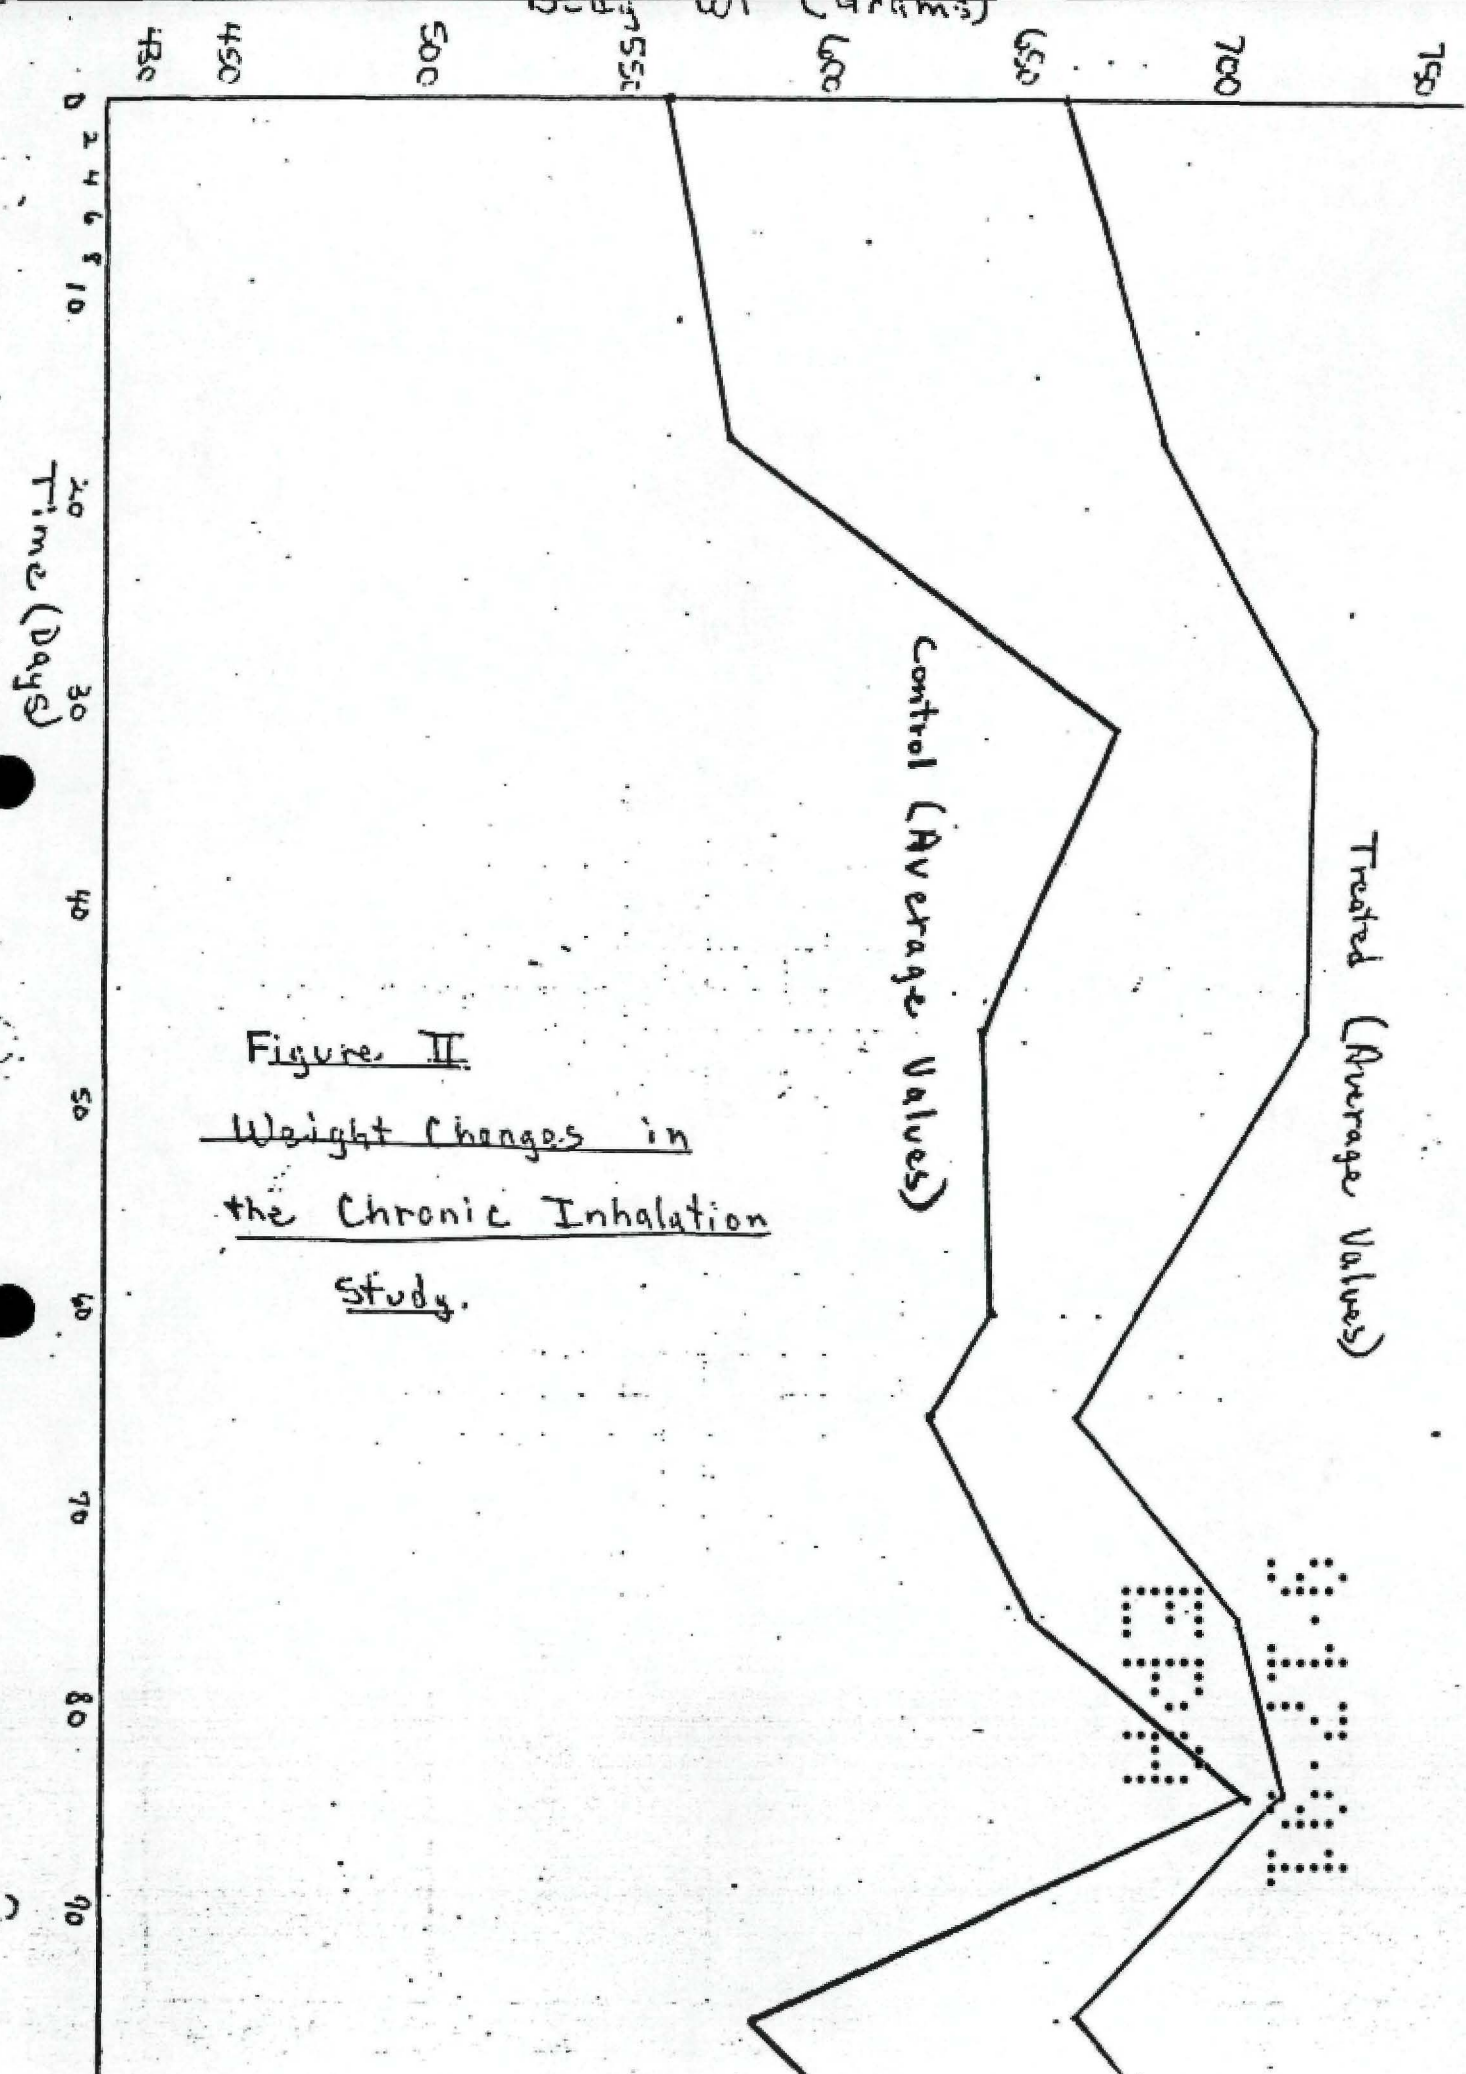 Body Wt (Grams)
750
700
650
600
550
500
450
430
0 2 4 6 8 10 20 30 40 50 60 70 80 90
Time (Days)
Treated (Average Values)
Control (Average Values)
Figure II
Weight Changes in
the Chronic Inhalation
Study.